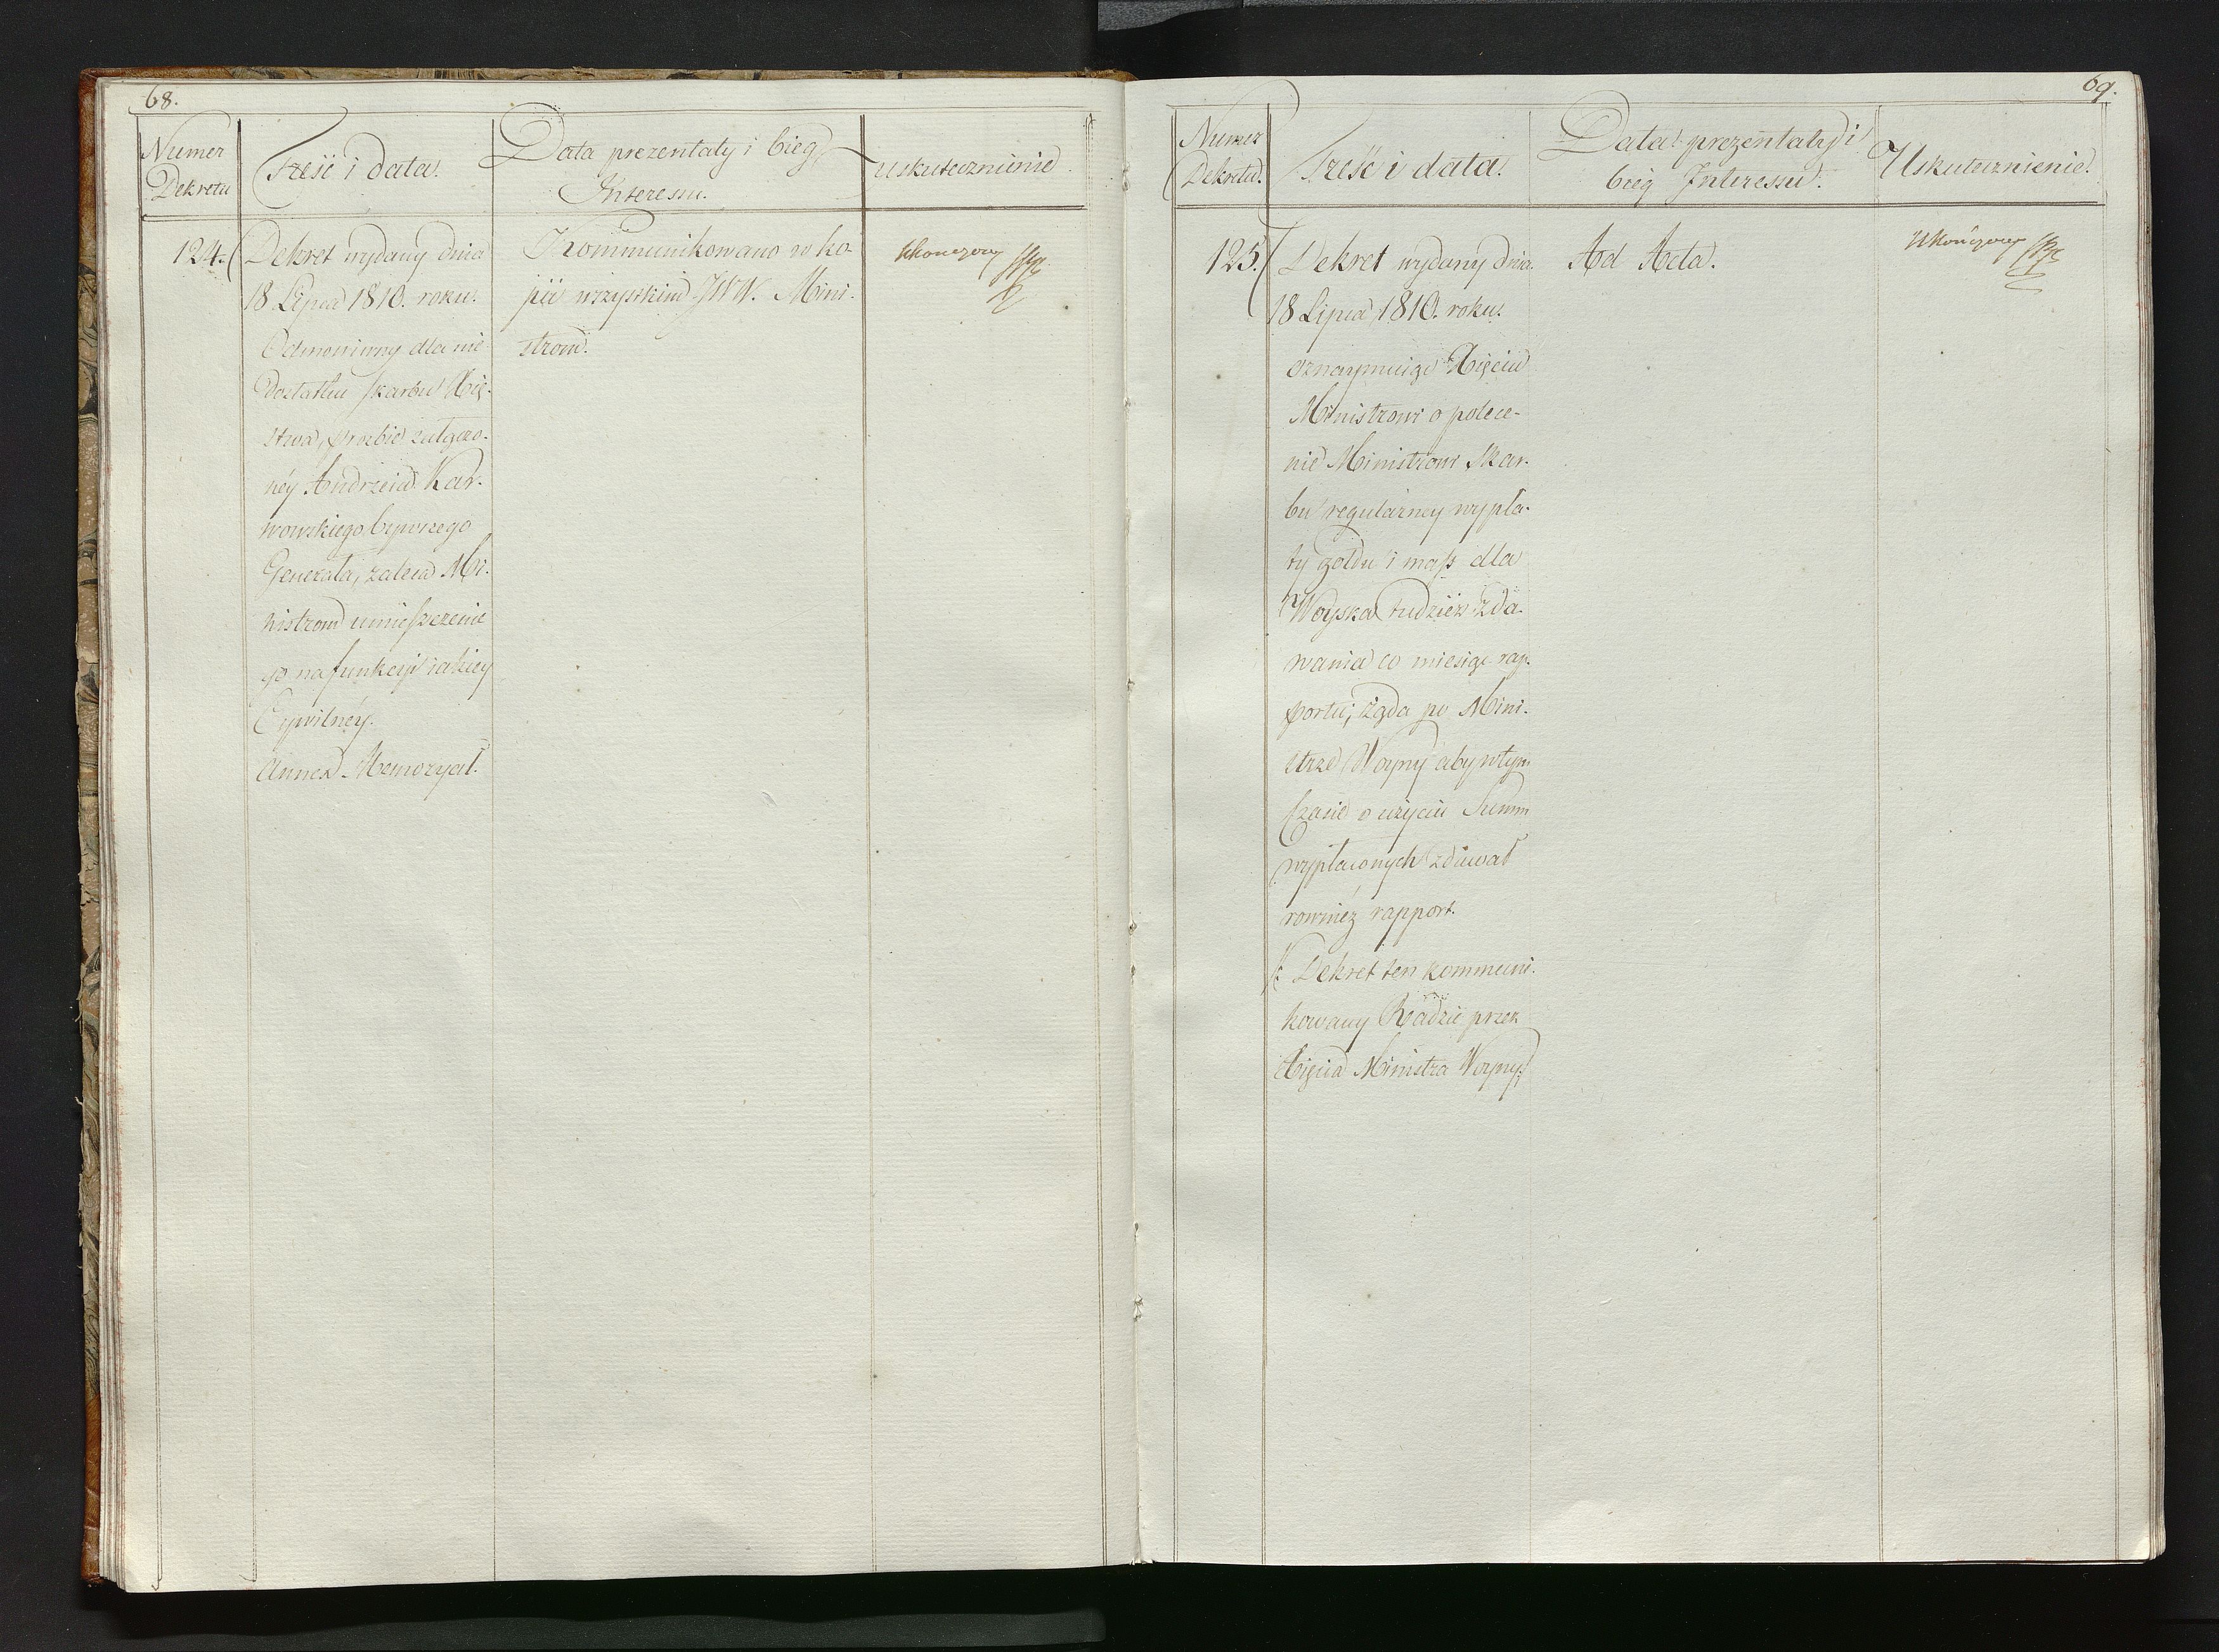 68.
Numer
Dekretu
Treść i data.
Data prezentaty i bieg
Interessu.
Uskutecznienie
124.
Dekret wydany dnia
18 Lipca 1810. roku.
Odmowiwny dla nie
dostatku skarbu Xię-
stwa, prozbie załączo-
ney Andrzeia Kar-
wowskiego bywszego
Generała, zaleca Mi-
nistrom umieszczenie
go na funkcyi iakiey
Cywilnéy.
Annex. Memoryał.
Kommunikowano w ko-
pii wszystkim JWW. Mini-
strom.
Ukończony
69.
Numer
Dekretu.
Treść i data.
Data prezentaty i
bieg Interessu.
Uskutecznienie.
125.
Dekret wydany dnia
18 Lipca 1810. roku.
oznaymuiąc Xięciu
Ministrowi o polece-
nie Ministrowi Skar-
bu regularney wypła-
ty żołdu i mass dla
Woyska tudzież zda-
wania co miesiąc rap-
portu, żąda po Mini-
strze Woyny aby w tym
czasie o użyciu Summ
wypłaconych zdawał
rownież rapport.
/: Dekret ten kommuni-
kowany Radzie przez
Xięcia Ministra Woyny :/
Ad Acta.
Ukończony